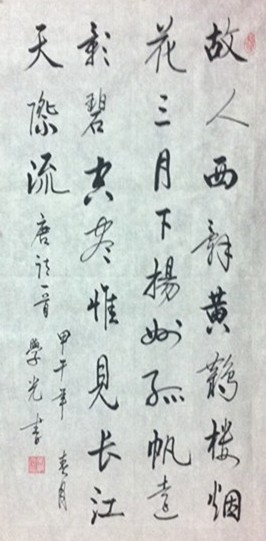 故人西辞黄鹤楼烟
花三月下扬州孤帆远
影碧空尽惟见长江
天际流
唐诗一首
甲午年春月
学光书